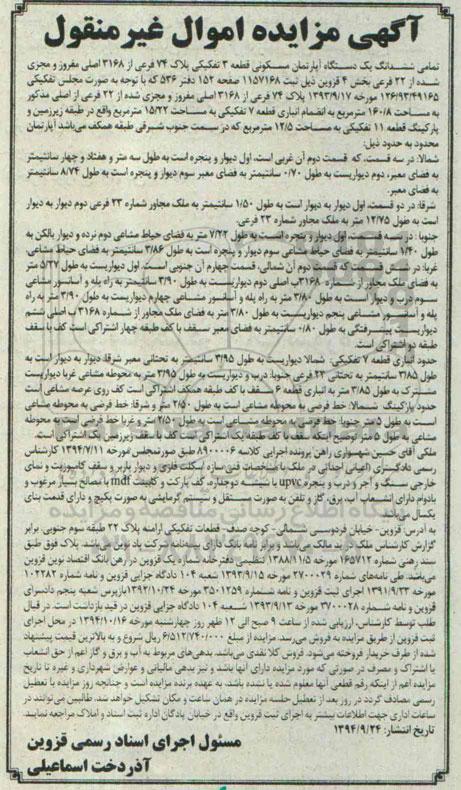 آگهی مزایده اموال غیرمنقول
تمامی ششدانگ یک دستگاه آپارتمان مسکونی قطعه ۳ تفکیکی پلاک ۷۴ فرعی از ۳۱۶۸ اصلی مفروز و مجزی
شده از ۲۲ فرعی بخش ۴ قزوین ذیل ثبت ۱۱۵۷۱۶۸ صفحه ۱۵۲ دفتر ۵۳۶ که با توجه به صورت مجلس تفکیکی
۱۲۶/۹۳/۴۹۱۶۵ مورخه ۱۳۹۳/۹/۱۷ پلاک ۷۴ فرعی از ۳۱۶۸ اصلی مفروز و مجزی شده از ۲۲ فرعی از اصلی مذکور
به مساحت ۱۶۰/۸ مترمربع به انضمام انباری قطعه ۷ تفکیکی به مساحت ۱۵/۲۲ مترمربع واقع در طبقه زیرزمین و
پارکینگ قطعه ۱۱ تفکیکی به مساحت ۱۲/۵ مترمربع که در سمت جنوب شرقی طبقه همکف می‌باشد آپارتمان
محدود به حدود ذیل:
شمالا: در سه قسمت، که قسمت دوم آن غربی است، اول دیوار و پنجره است به طول سه متر و هفتاد و چهار سانتیمتر
به فضای معبر، دوم دیواریست به طول ۰/۷۰ سانتیمتر به فضای معبر سوم دیوار و پنجره است به طول ۸/۷۴ سانتیمتر
به فضای معبر.
شرقا: در دو قسمت، اول دیوار به دیوار است به طول ۱/۵۰ سانتیمتر به ملک مجاور شماره ۲۳ فرعی دوم دیوار به دیوار
است به طول ۱۲/۷۵ متر به ملک مجاور شماره ۲۳ فرعی.
جنوبا: در سه قسمت، اول دیوار و پنجره است به طول ۷/۲۲ متر به فضای حیاط مشاعی دوم نرده و دیوار بالکن به
طول ۱/۴۰ سانتیمتر به فضای حیاط مشاعی سوم دیوار و پنجره است به طول ۳/۸۶ سانتیمتر به فضای حیاط مشاعی.
غربا: در شش قسمت که قسمت دوم آن شمالی، قسمت چهارم آن جنوبی است. اول دیواریست به طول ۵/۲۷ متر
به فضای ملک مجاور از شماره ۳۱۶۸ب اصلی دوم دیواریست به طول ۳/۹۰ سانتیمتر به راه پله و آسانسور مشاعی
سوم درب و دیوار است به طول ۳/۸۰ متر به راه پله و آسانسور مشاعی چهارم دیواریست به طول ۳/۹۰ متر به راه
پله و آسانسور مشاعی پنجم دیواریست به طول ۳/۸۰ متر به فضای ملک مجاور از شماره ۳۱۶۸ ب اصلی ششم
دیواریست پیشرفتگی به طول ۰/۸۰ سانتیمتر به فضای معبر سقف با کف طبقه چهار اشتراکی است کف با سقف
طبقه دو اشتراکی است.
حدود انباری قطعه ۷ تفکیکی: شمالا دیواریست به طول ۳/۹۵ سانتیمتر به تحتانی معبر شرقا: دیوار به دیوار است به
طول ۳/۸۵ سانتیمتر به تحتانی ۲۳ فرعی جنوبا: درب و دیواریست به طول ۳/۹۵ متر به محوطه مشاعی غربا دیواریست
مشترک به طول ۳/۸۵ متر به انباری قطعه ۶ سقف با کف طبقه همکف اشتراکی است کف روی عرصه مشاعی است
حدود پارکینگ شمالا: خط فرضی به محوطه مشاعی است به طول ۲/۵۰ متر و شرقا: خط فرضی به محوطه مشاعی
است به طول ۵ متر جنوبا: خط فرضی به محوطه مشاعی است به طول ۲/۵۰ متر و غربا خط فرضی است به محوطه
مشاعی به طول ۵ متر توضیح اینکه سقف با کف طبقه یک اشتراکی است کف با سقف زیرزمین یک اشتراکی است.
ملکی آقای حسین شهسواری راهن پرونده اجرایی کلاسه ۸۹۰۰۰۰۶ طبق صورتمجلس مورخه ۱۳۹۴/۷/۱۱ کارشناس
رسمی دادگستری (اعیانی احداثی در ملک با مشخصات فنی سازه اسکلت فلزی و دیوار باربر و سقف کامپوزیت و نمای
خارجی سنگ و آجر و درب و پنجره upvc با شیشه دوجداره، کف پارکت و کابینت mdf با مصالح بسیار مرغوب و
بادوام دارای انشعاب آب، برق، گاز و تلفن به صورت مستقل و سیستم گرمایشی به صورت پکیج و دارای قدمت بنای
یکسال می‌باشد.
به آدرس قزوین- خیابان فردوسی شمالی- کوچه صدف- قطعات تفکیکی ارامنه پلاک ۲۲ طبقه سوم جنوبی. برابر
گزارش کارشناس ملک در ید مالک می‌باشد و برابر نامه بانک دارای بیمه‌نامه شرکت پاد نوین می‌باشد. پلاک فوق طبق
سند رهنی شماره ۱۶۵۷۱۲ مورخه ۱۳۸۸/۱۱/۵ تنظیمی دفترخانه شماره یک قزوین در رهن بانک اقتصاد نوین قزوین
می‌باشد. طی نامه‌های شماره ۲۷۰۰۰۲۹ مورخه ۱۳۹۳/۹/۱۵ شعبه ۱۰۴ دادگاه جزایی قزوین و نامه شماره ۱۰۲۲۸۲
۱۳۹۱/۹/۲۳ مورخه اجرای ثبت قزوین و نامه شماره ۳۵۰۱۲۵۹ مورخه ۱۳۹۲/۱۰/۲۴ بازپرس شعبه پنجم دادسرای
قزوین و نامه شماره ۳۷۰۰۰۲۸ مورخه ۱۳۹۳/۹/۱۳ شعبه ۱۰۴ دادگاه جزایی قزوین در قید بازداشت است. در قبال
طلب توسط کارشناس، ارزیابی شده از ساعت ۹ صبح الی ۱۲ ظهر روز چهارشنبه مورخه ۱۳۹۴/۱۰/۱۶ در محل اجرای
ثبت قزوین از طریق مزایده به فروش می‌رسد. مزایده از مبلغ ۶/۵۱۲/۷۴۰/۰۰۰ ریال شروع و به بالاترین قیمت پیشنهاد
شده از طرف خریدار فروخته می‌شود. فروش کلا نقدی می‌باشد. بدهی‌های مربوط به آب و برق و گاز اعم از حق انشعاب
یا اشتراک و مصرف در صورتی که مورد مزایده دارای آنها باشد و نیز بدهی مالیاتی و عوارض شهرداری و غیره تا تاریخ
مزایده اعم از اینکه رقم قطعی آنها معلوم شده یا نشده باشد، به عهده برنده مزایده است و چنانچه روز مزایده با تعطیل
رسمی مصادف گردد در روز بعد از تعطیل جلسه مزایده در همان ساعت و مکان تشکیل خواهد شد. طالبین می‌توانند در
ساعات اداری جهت اطلاعات بیشتر به اجرای ثبت قزوین واقع در خیابان پادگان اداره ثبت اسناد و املاک مراجعه نمایند.
تاریخ انتشار: ۱۳۹۴/۹/۲۴
مسئول اجرای اسناد رسمی قزوین
آذردخت اسماعیلی